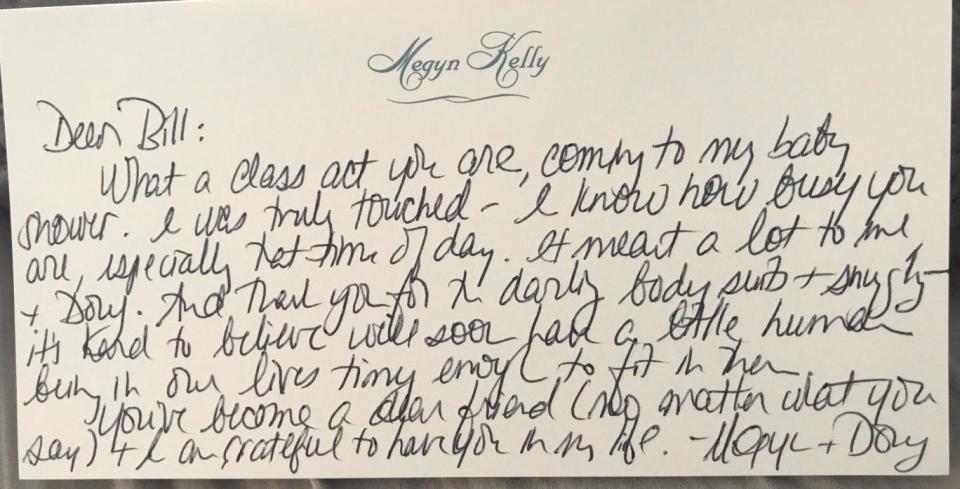 Megyn Kelly
Dear Bill:
What a class act you are, coming to my baby
shower. I was truly touched – I know how busy you
are, especially that time of day. It meant a lot to me
+ Doug. And thank you for the darling body suits + snuggly –
it's hard to believe we'll soon have a little human
being in our lives tiny enough to fit in them.
You've become a dear friend (no matter what you
say) + I am grateful to have you in my life. – Megyn + Doug